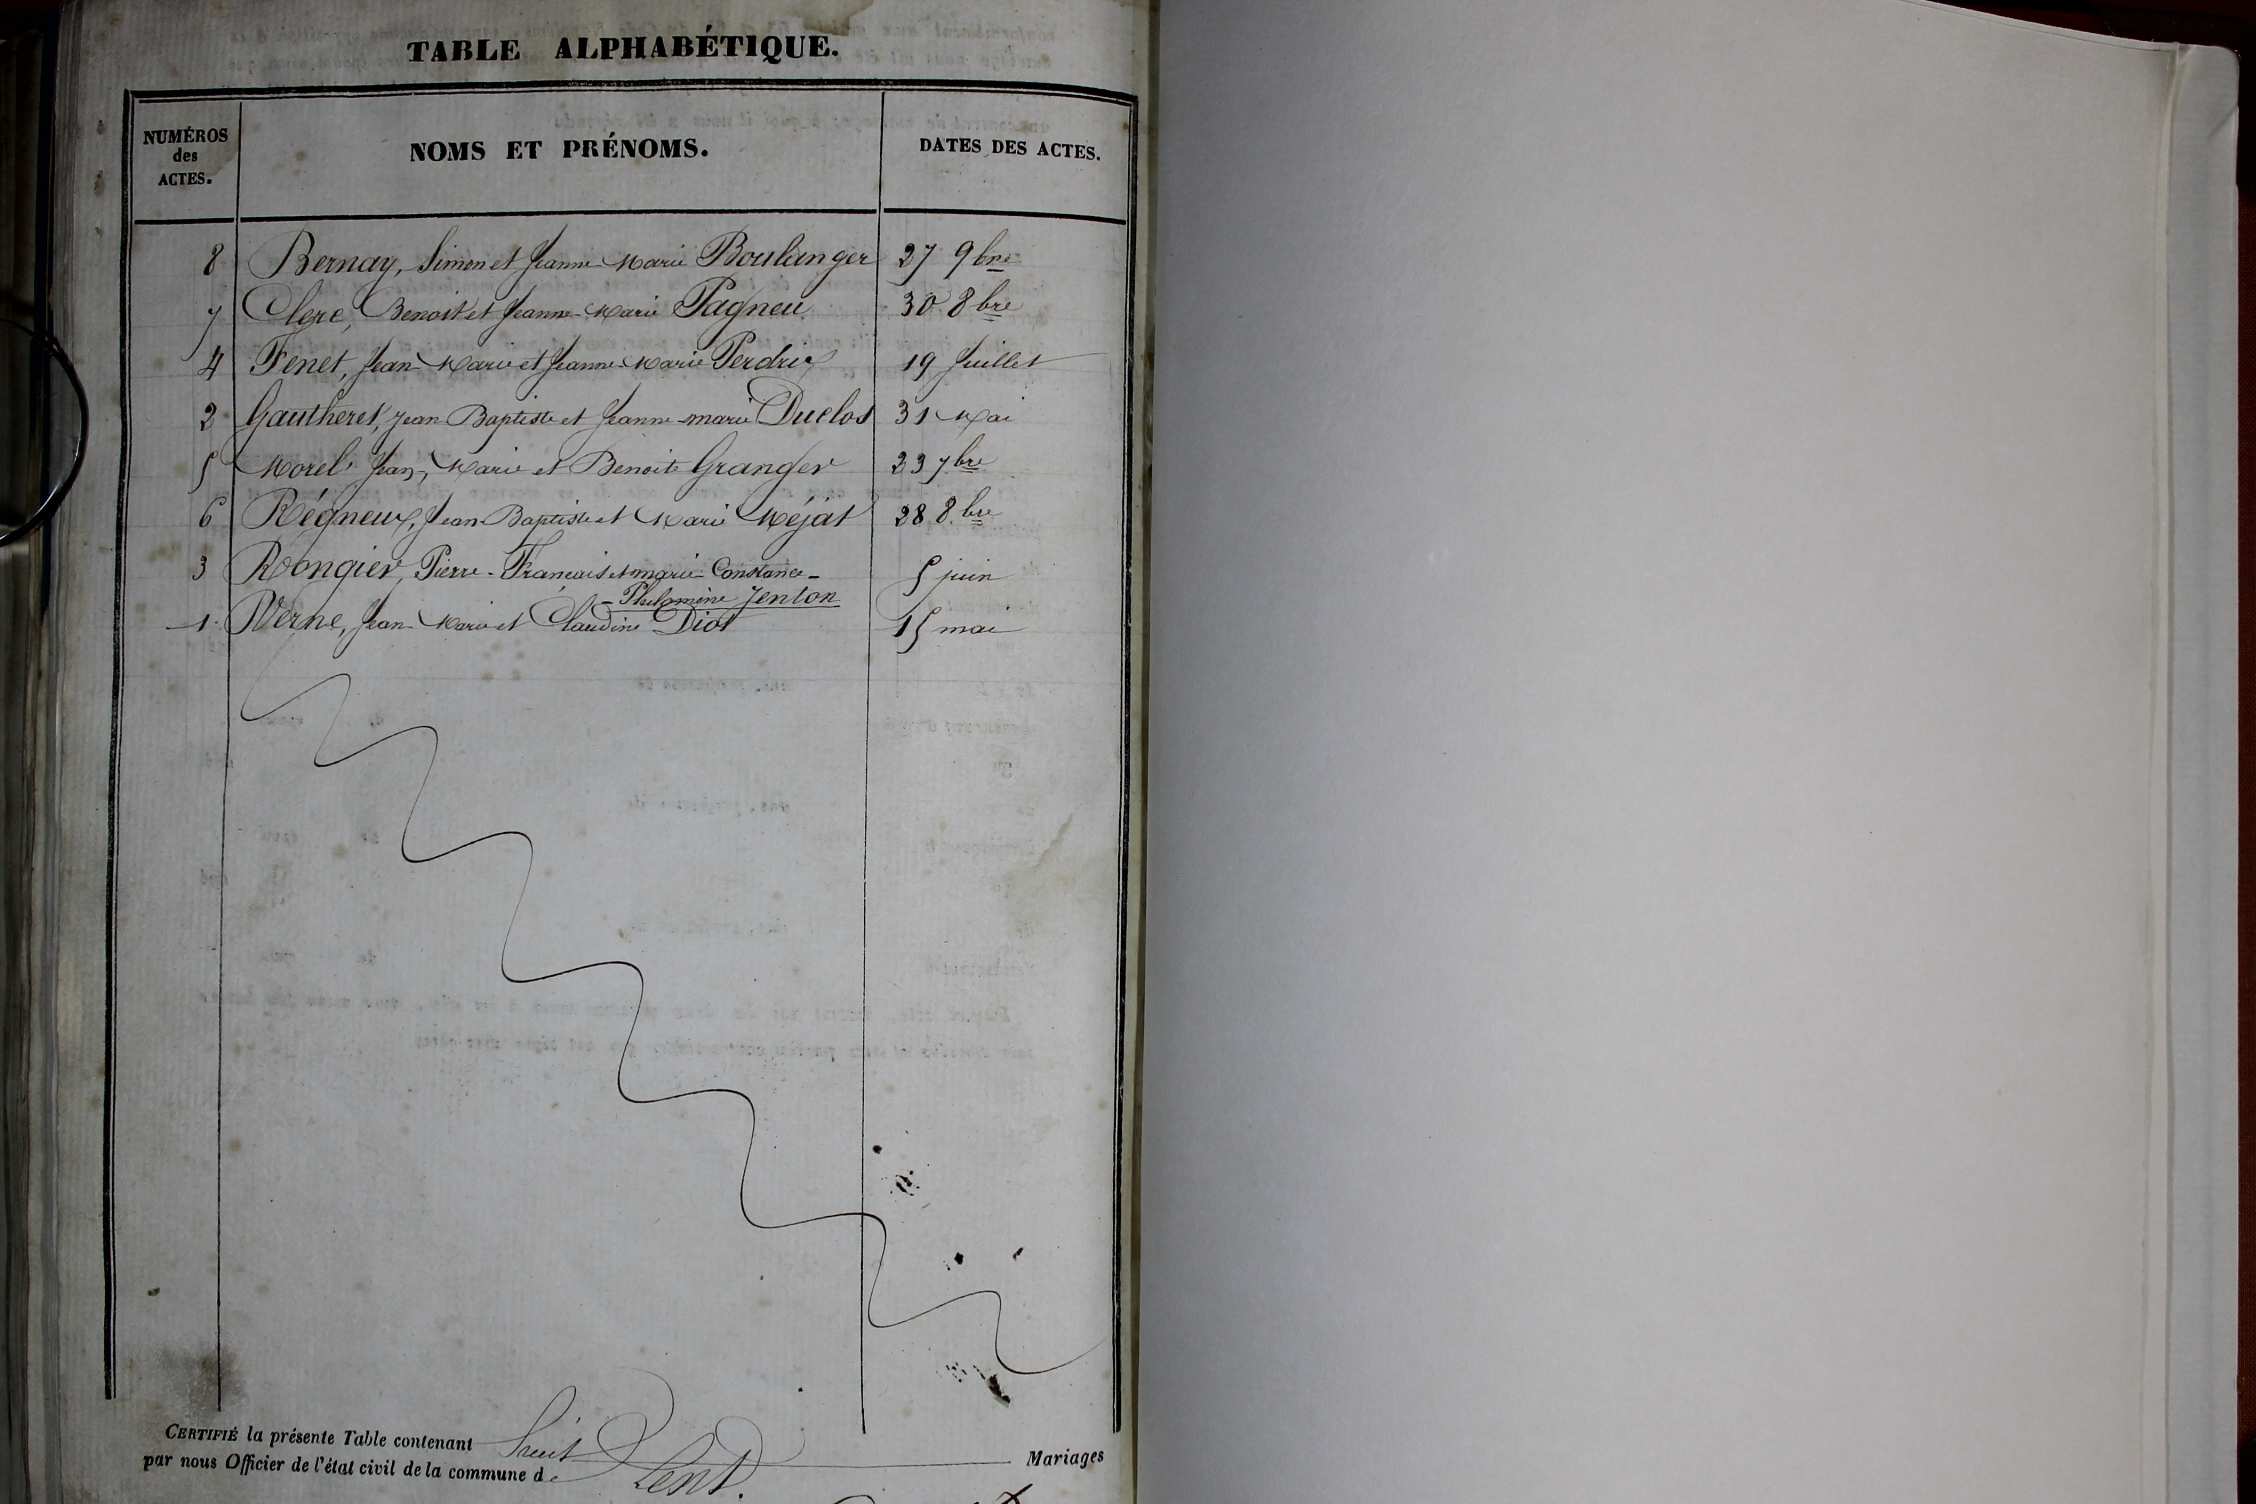 TABLE ALPHABÉTIQUE.
NUMÉROS
des
ACTES.
NOMS ET PRÉNOMS.
DATES DES ACTES.
8 Bernay, Simon et Jeanne Marie Boulanger 27 9bre
7 Clerc, Benoit et Jeanne-Marie Pagneu 30 8bre
4 Fenet, Jean Marie et Jeanne-Marie Perdrix 19 Juillet
2 Gautheret, Jean Baptiste et Jeanne-marie Duclos 31 Mai
5 Morel Jean, Marie et Benoite Granger 23 7bre
6 Régneux, Jean-Baptiste et Marie Méjat 28 8bre
3 Rongier, Pierre-François et marie Constance- 5 juin
-Philomène Jenton
1 Verne, Jean-Marie et Claudine Diot 15 mai
CERTIFIÉ la présente Table contenant huit Mariages
par nous Officier de l'état civil de la commune de Lent.